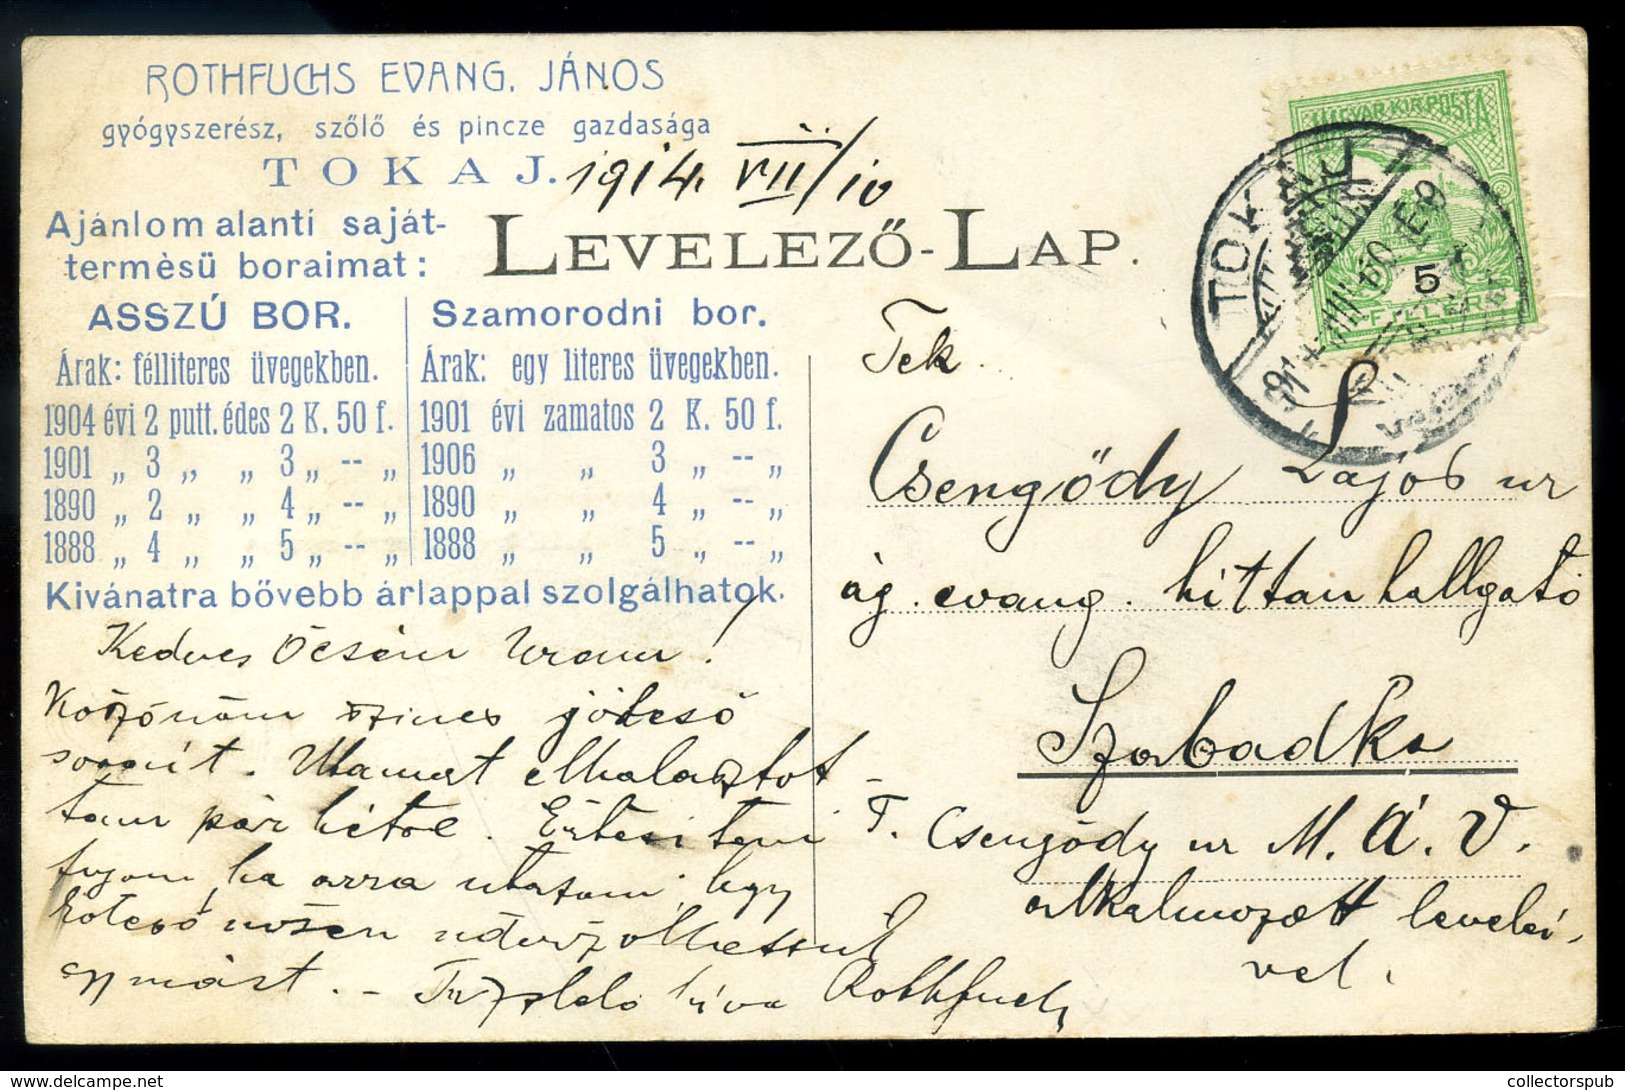 ROTHFUCHS EVANG. JÁNOS
gyógyszerész, szőlő és pincze gazdasága
TOKAJ.
1914. VII/10
LEVELEZŐ-LAP.
Ajánlom alanti saját-
termèsü boraimat:
ASSZÚ BOR.
Árak: félliteres üvegekben.
1904 évi 2 putt. édes 2 K. 50 f.
1901 „ 3 „ „ 3 „ -- „
1890 „ 2 „ „ 4 „ -- „
1888 „ 4 „ „ 5 „ -- „
Szamorodni bor.
Árak: egy literes üvegekben.
1901 évi zamatos 2 K. 50 f.
1906 „ „ 3 „ -- „
1890 „ „ 4 „ -- „
1888 „ „ 5 „ -- „
Kivánatra bővebb árlappal szolgálhatok.
Kedves Öcsém Uram!
Köszönöm szives
sorait. Utamat elhalasztot-
tam pár héttel. Értesiteni
fogom, ha arra utazom, hogy
egymást. - Hiva Rothfuchs
MAGYAR KIR. POSTA
5
FILLÉR
TOKAJ
Tek.
Csengődy Lajos ur
ág. evang. hittanhallgató
Szabadka
T. Csengődy ur M.Á.V.
alkalmazott levelei-
vel.
collectorspub